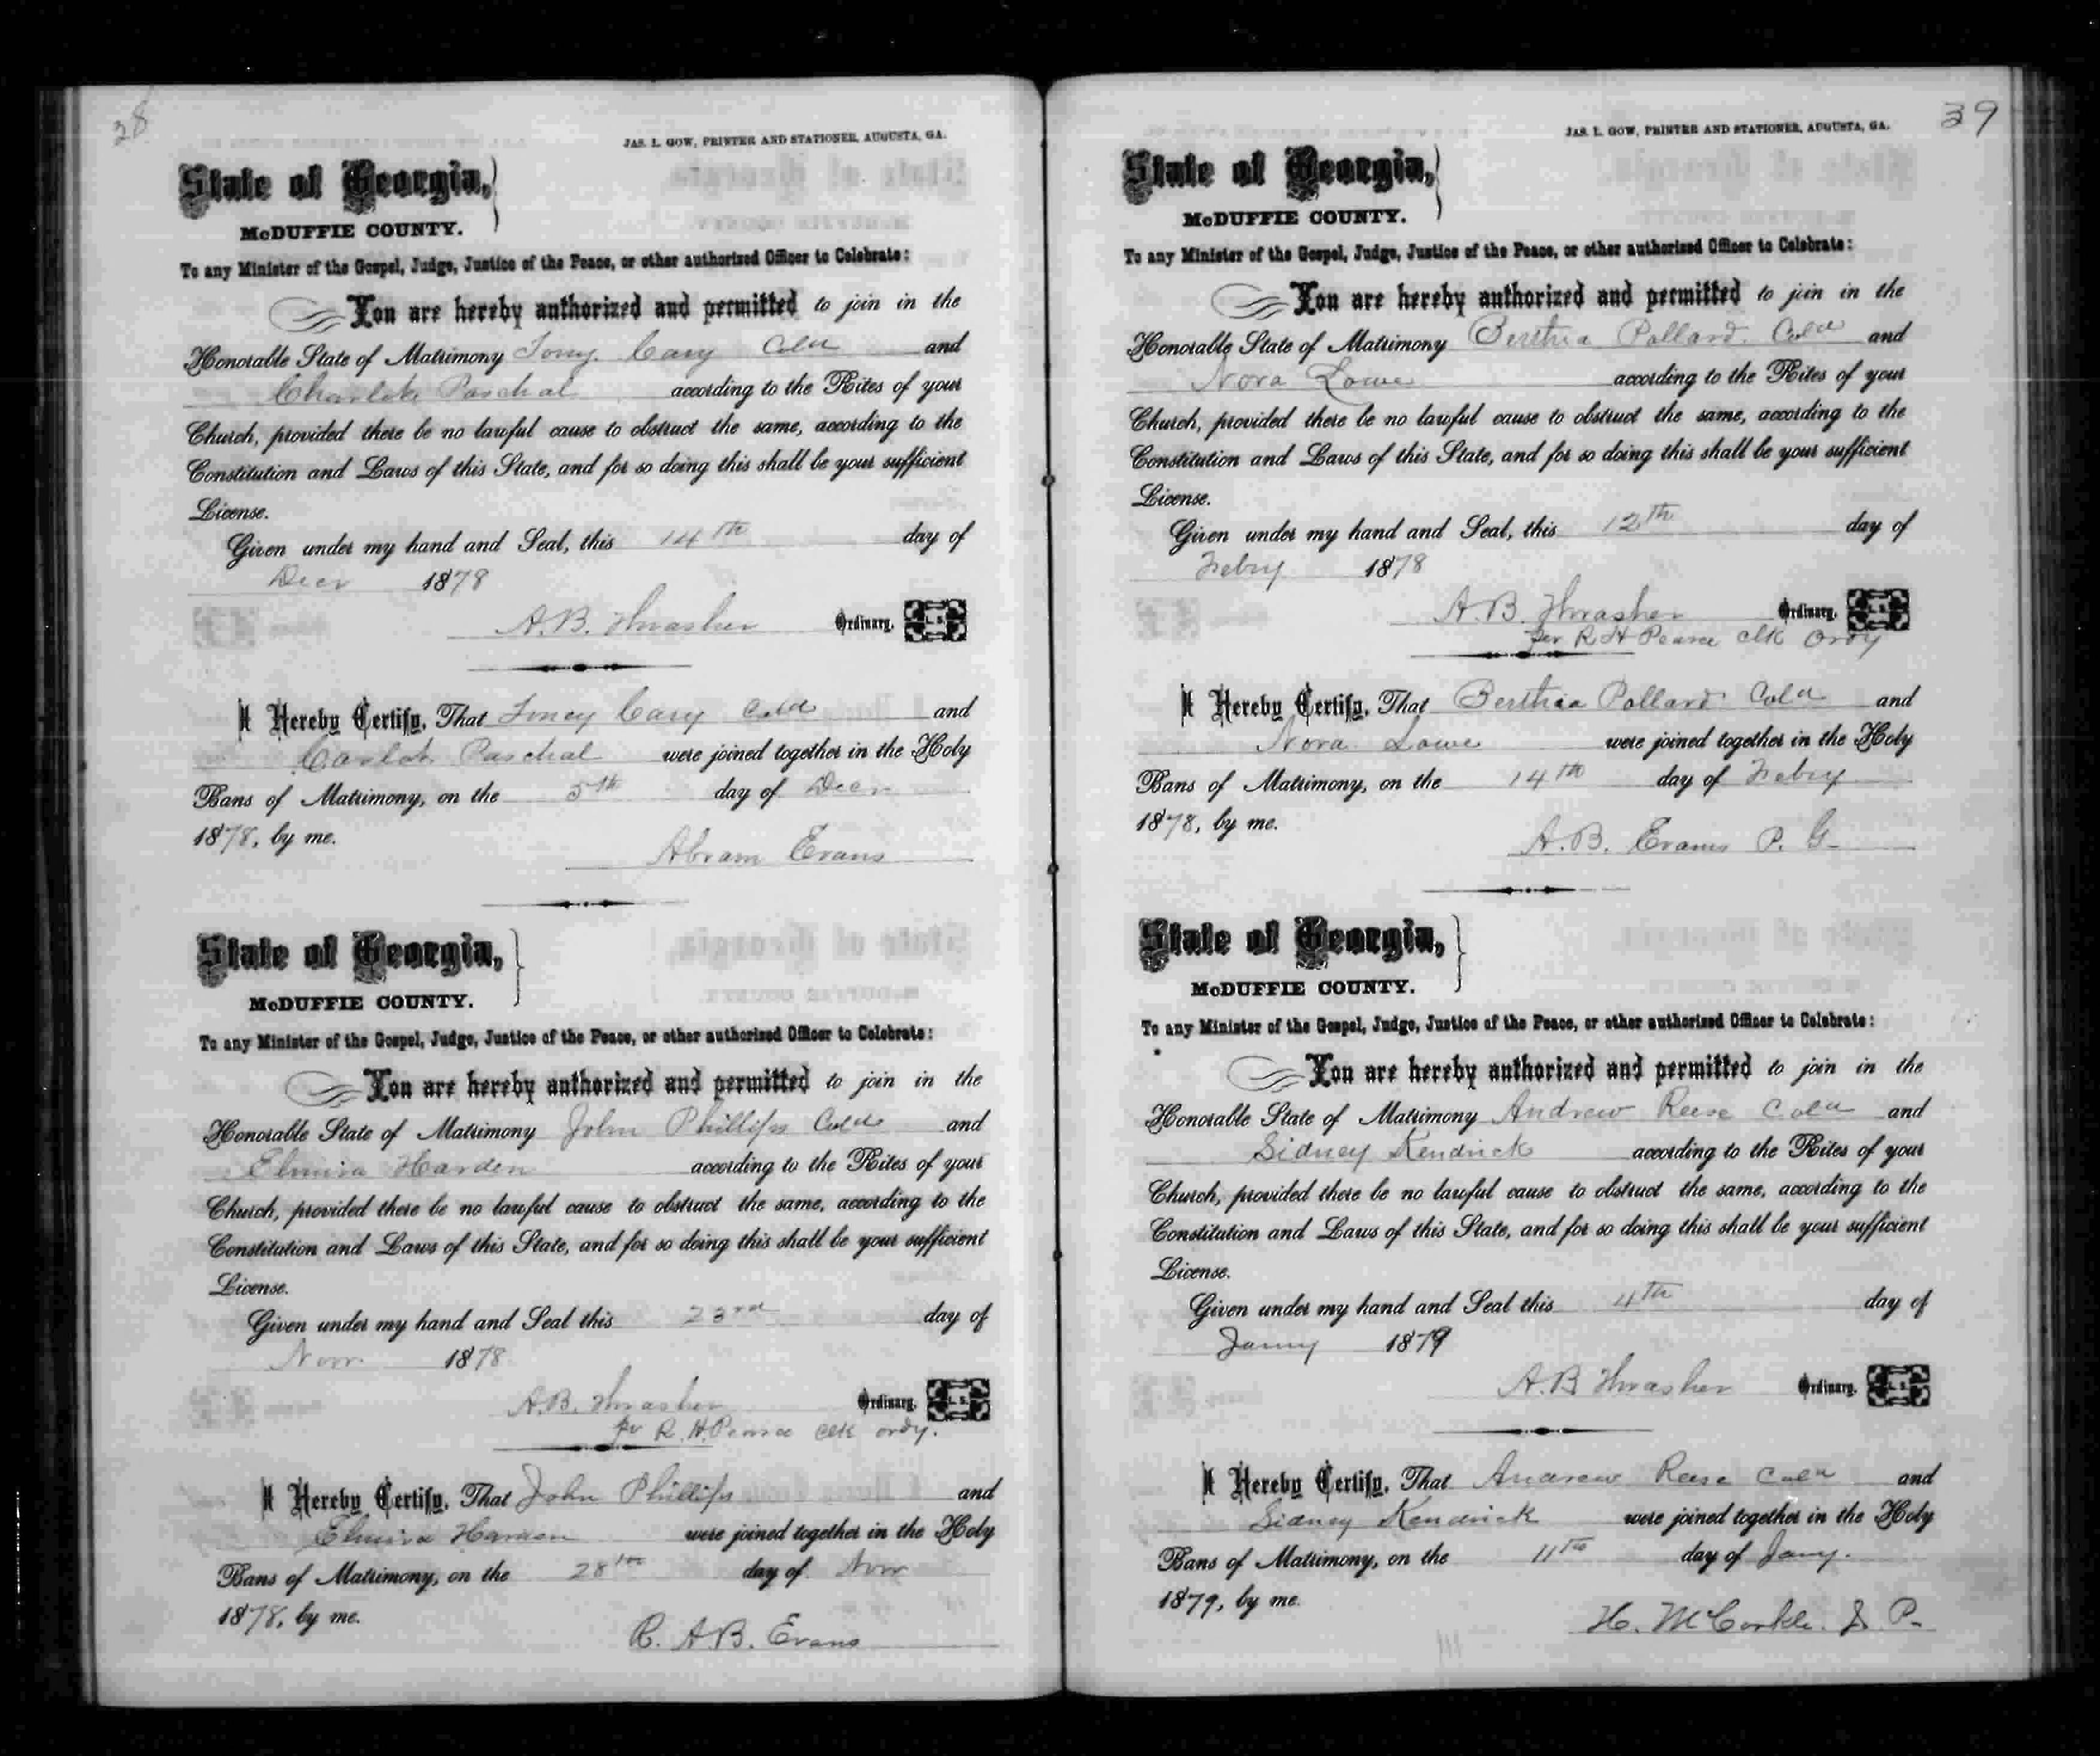 28
JAS. L. GOW, PRINTER AND STATIONER, AUGUSTA, GA.
State of Georgia,
McDUFFIE COUNTY.
To any Minister of the Gospel, Judge, Justice of the Peace, or other authorized Officer to Celebrate:
You are hereby authorized and permitted to join in the
Honorable State of Matrimony Cary Cold and
Paschal according to the Rites of your
Church, provided there be no lawful cause to obstruct the same, according to the
Constitution and Laws of this State, and for so doing this shall be your sufficient
License.
Given under my hand and Seal, this 14th day of
Decr 1878
A.B. Thrasher Ordinary, L.S.
I Hereby Certify, That Cary Cold and
Paschal were joined together in the Holy
Bans of Matrimony, on the 5th day of Decr
1878, by me.
Abram Evans
State of Georgia,
McDUFFIE COUNTY.
To any Minister of the Gospel, Judge, Justice of the Peace, or other authorized Officer to Celebrate:
You are hereby authorized and permitted to join in the
Honorable State of Matrimony John Phillips Cold and
Elmira Harden according to the Rites of your
Church, provided there be no lawful cause to obstruct the same, according to the
Constitution and Laws of this State, and for so doing this shall be your sufficient
License.
Given under my hand and Seal this 23rd day of
Novr 1878
A.B. Thrasher Ordinary, L.S.
per R.H. Pearce clk ordy.
I Hereby Certify, That John Phillips and
Elmira Harden were joined together in the Holy
Bans of Matrimony, on the 28th day of Novr
1878, by me.
R. A.B. Evans
39
JAS. L. GOW, PRINTER AND STATIONER, AUGUSTA, GA.
State of Georgia,
McDUFFIE COUNTY.
To any Minister of the Gospel, Judge, Justice of the Peace, or other authorized Officer to Celebrate:
You are hereby authorized and permitted to join in the
Honorable State of Matrimony Berthia Pollard Cold and
Nora Lowe according to the Rites of your
Church, provided there be no lawful cause to obstruct the same, according to the
Constitution and Laws of this State, and for so doing this shall be your sufficient
License.
Given under my hand and Seal, this 12th day of
Febry 1878
A.B. Thrasher Ordinary, L.S.
per R H Pearce clk Ordy
I Hereby Certify, That Berthia Pollard Cold and
Nora Lowe were joined together in the Holy
Bans of Matrimony, on the 14th day of Febry
1878, by me.
A.B. Evans P. G.
State of Georgia,
McDUFFIE COUNTY.
To any Minister of the Gospel, Judge, Justice of the Peace, or other authorized Officer to Celebrate:
You are hereby authorized and permitted to join in the
Honorable State of Matrimony Andrew Reese Cold and
Sidney Kendrick according to the Rites of your
Church, provided there be no lawful cause to obstruct the same, according to the
Constitution and Laws of this State, and for so doing this shall be your sufficient
License.
Given under my hand and Seal this 4th day of
Jany 1879
A.B Thrasher Ordinary, L.S.
I Hereby Certify, That Andrew Reese Cold and
Sidney Kendrick were joined together in the Holy
Bans of Matrimony, on the 11th day of Jany.
1879, by me.
H. McCorkle. J. P.